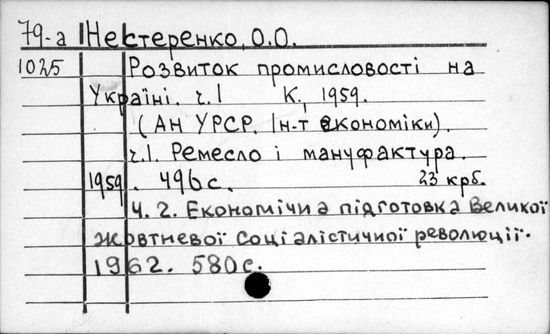 79-а Нестеренко, О.О.
1025 Розвиток промисловості на
Україні. ч.1 К., 1959.
(АН УРСР. Ін-т економіки).
ч.1. Ремесло і мануфактура.
1959. 496с. 23 крб.
Ч. 2. Економічна підготовка Великої
жовтневої соціалістичної революції.
1962. 580с.